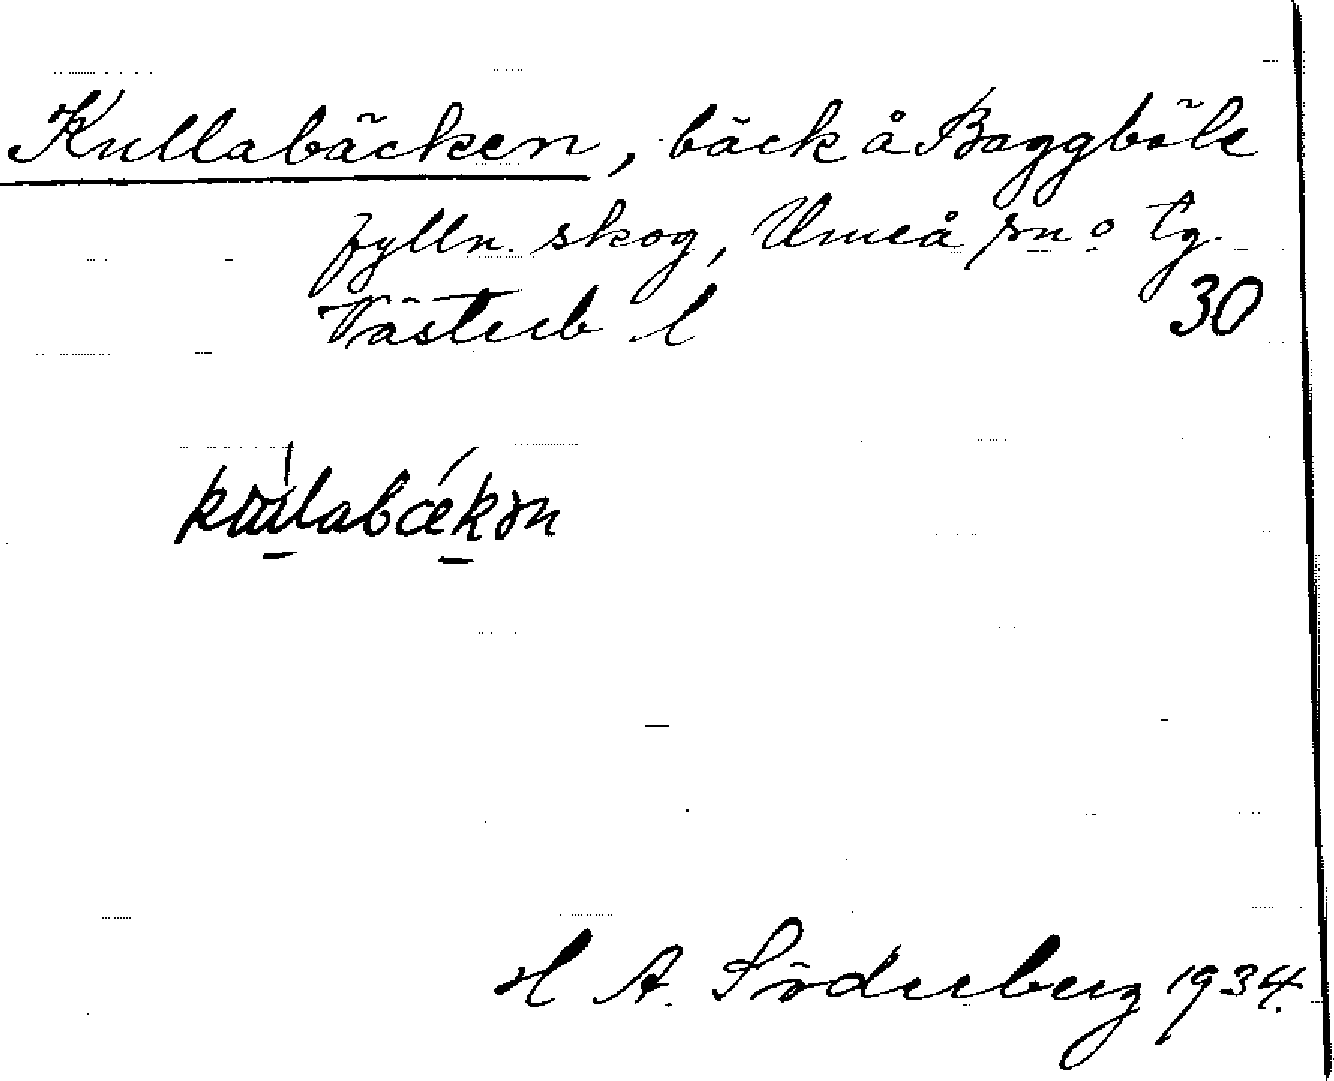 Kullabäcken, bäck å Baggböle
fylln. skog, Umeå sn o tg.
Västerb l 30
kulabækən
H A. Söderberg 1934.